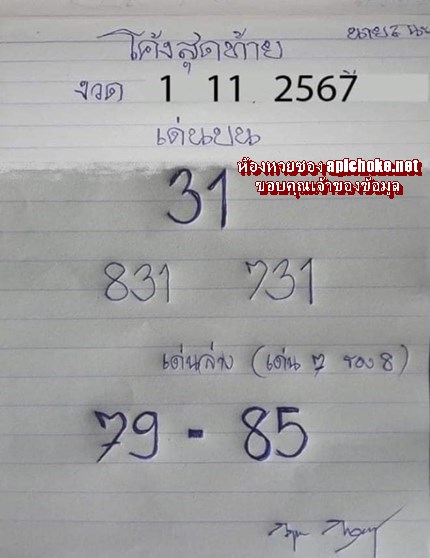 โค้งสุดท้าย
งวด 1 11. 2567
เด่นบน
ห้องหวยซอง apichoke.net
ขอบคุณเจ้าของข้อมูล
31
831 731
เด่นล่าง (เด่น 7 รอง 8)
79 - 85